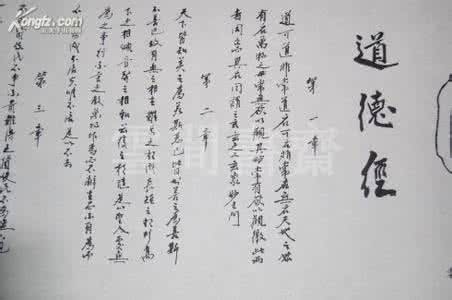 Kongfz.com
道德經
第一章
道可道非常道名可名非常名無名天地之始
有名萬物之母常無欲以觀其妙常有欲以觀徼此兩
者同出異名同謂之玄玄之又玄衆妙之門
第二章
天下皆知美之為美斯惡已皆知善之為善斯
不善已故有無之相生難易之相成長短之相形高
下之相傾音聲之相和前後之相隨是以聖人處無
為之事行不言之教萬物作焉而不辭生而不有為而
第三章